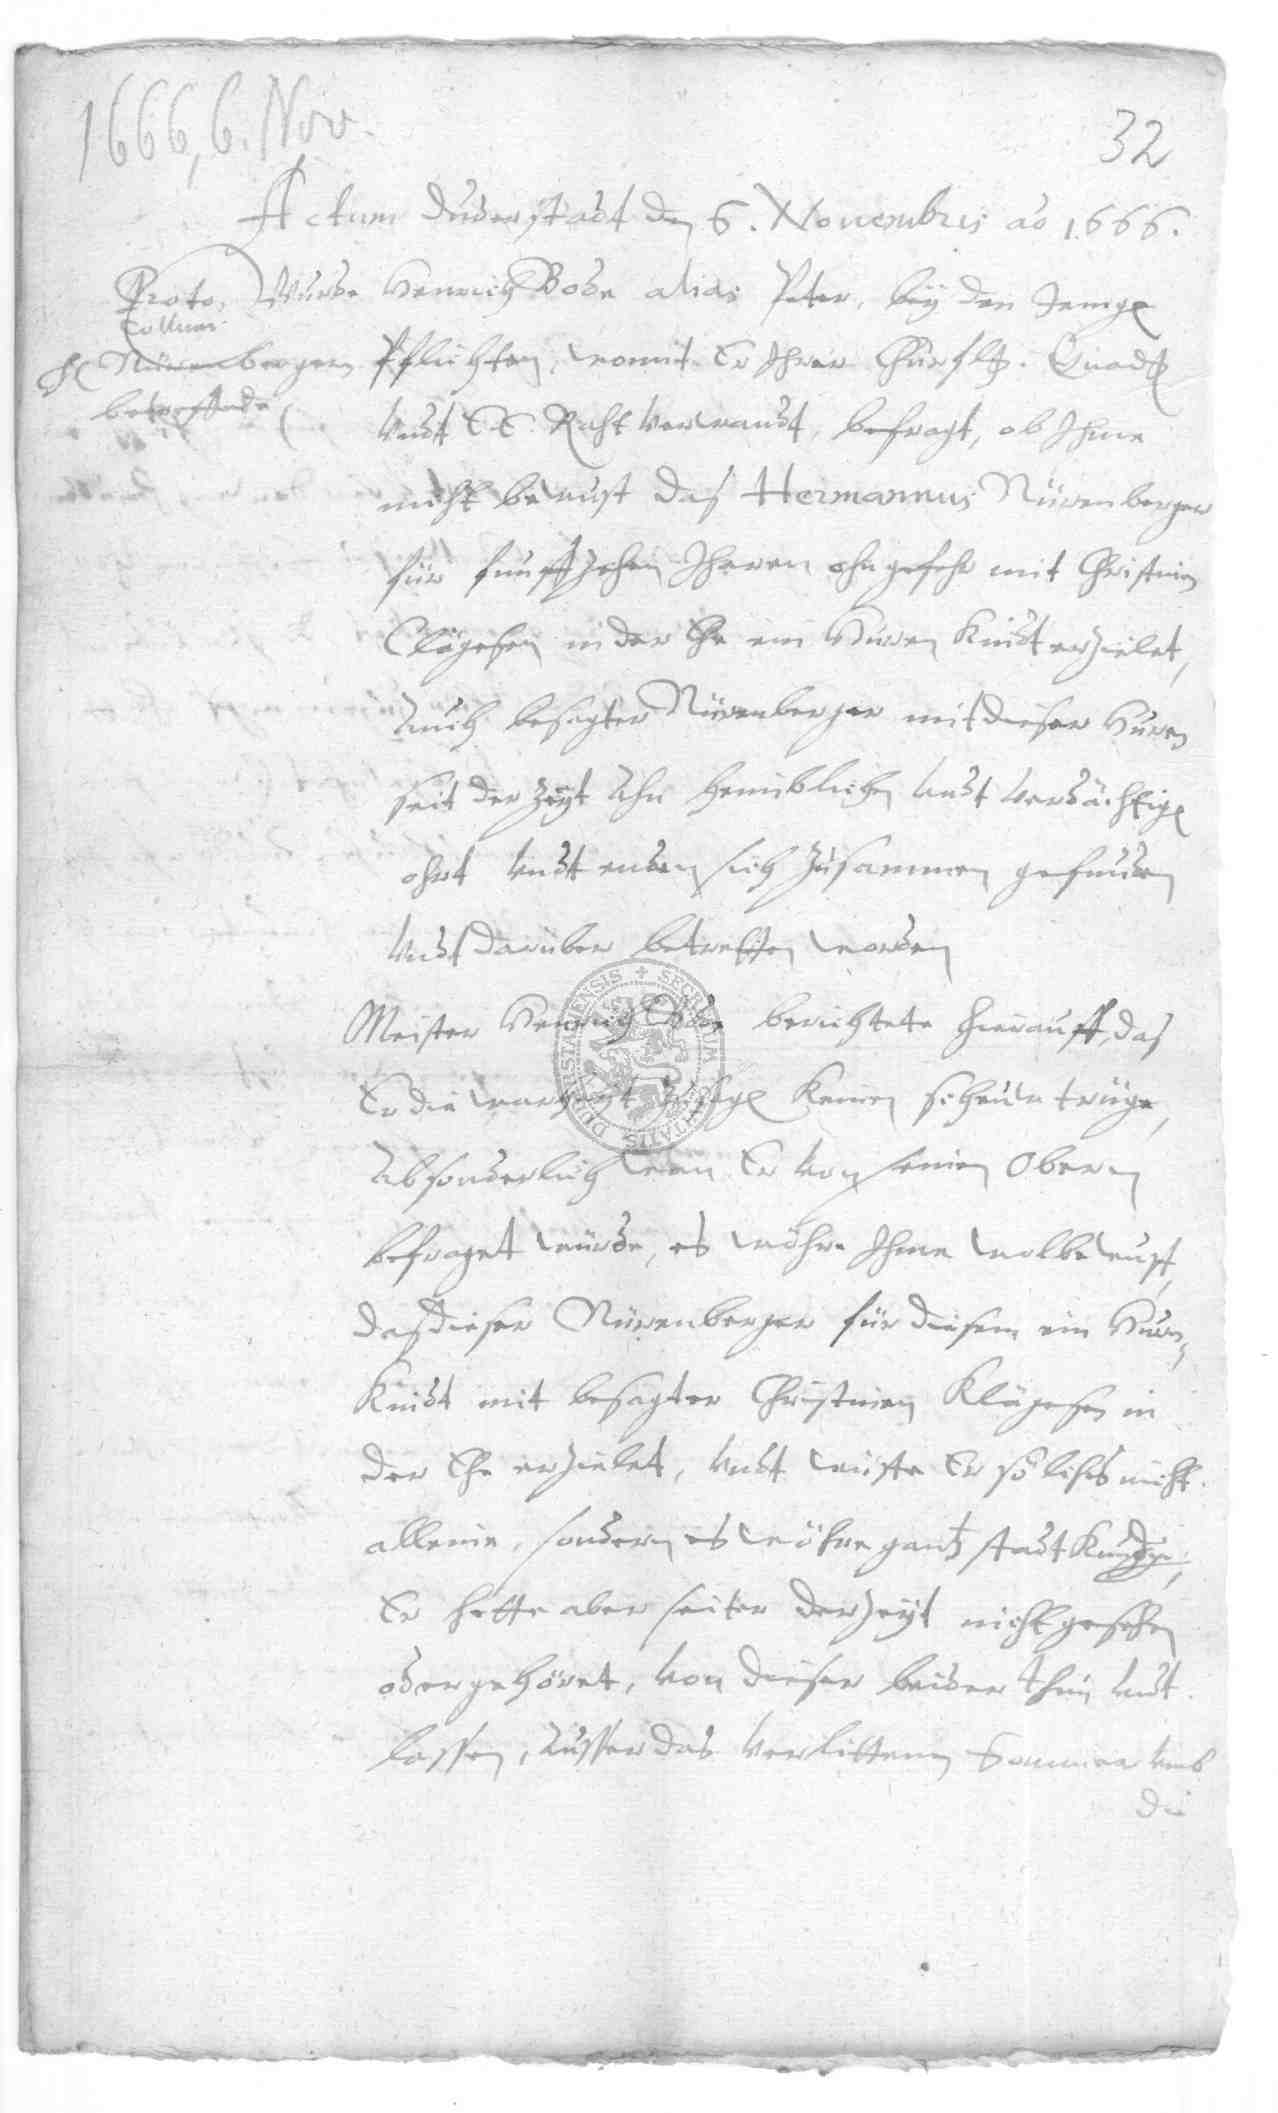 1666, 6. Nov.
32
Actum Duderstadt den 6. Novembris ao 1666.
Proto-
collum
H Nürenbergern
betreffende
Wurde Henrich Bode alias Peter, bey den Jenige
Pflichten, womit Er Ihrer Churfl. Gnad
undt E E Raht verwandt, befragt, ob Ihme
nicht bewust das Hermannus Nürenberger
für funffzehen Jharen ohngefehr mit Christinen
Clägesen in der Ehe ein Huren Kindt erzielet,
Auch besagter Nürenberger mit dieser Huren
seit der Zeyt Ahn heimblichen undt verdächtige
ohrt undt enden sich zusammen gefunden
undt darüber betreffen worden
Meister Henrich Bode berichtete hierauff, das
Er die warheyt Keinen scheuw trüge,
Absonderlich wan Er von seinen Obern
befraget würde, es wöhre Ihme wolbewust,
das dieser Nürenberger für diesem ein Huren
Kindt mit besagter Christinen Klägesen in
der Ehe erzielet, undt wüste Er solches nicht
alleine, sondern es wöhre gantz stadt Kundig,
Er hette aber seiter der Zeyt nicht gesehen
oder gehöret, von dieser beider thun undt
lassen, Ausser das verlittenen Sommer umb
die